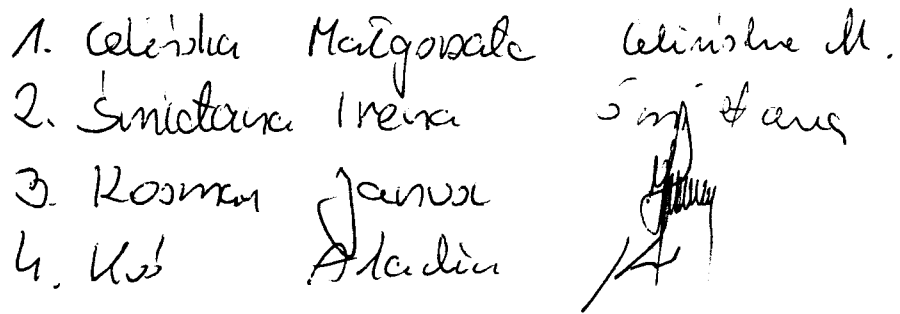 1. Celińska Małgorzata Celińska M.
2. Śmietana Irena Śmietana
3. Kosman Janusz
4. Koś Aladin